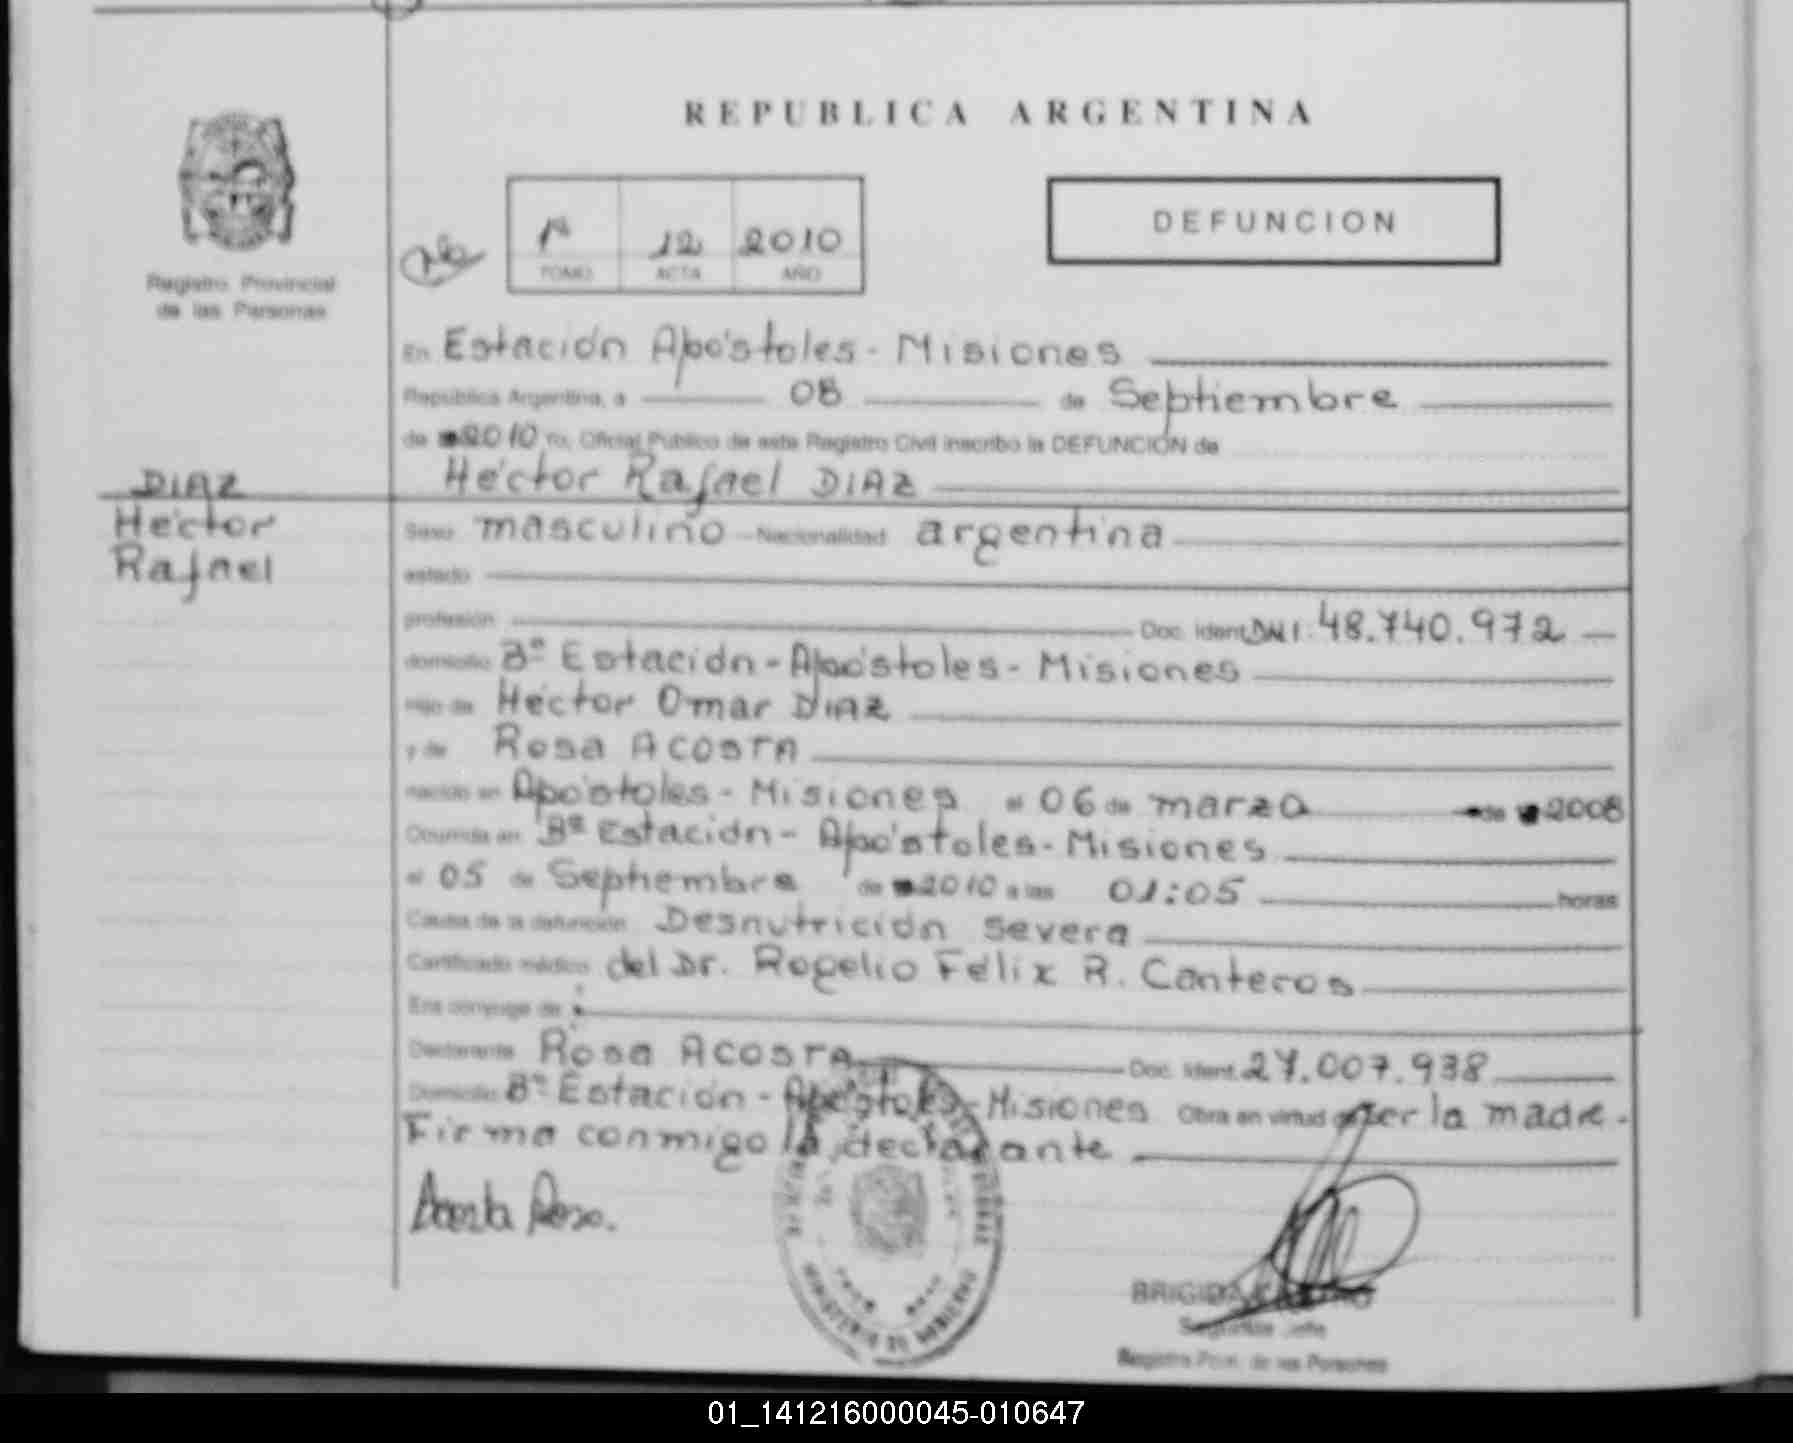 REPUBLICA ARGENTINA
Registro Provincial
de las Personas
1º 12 2010
TOMO ACTA AÑO
DEFUNCION
En Estación Apóstoles - Misiones
República Argentina, a 08 de Septiembre
de 2010 Yo, Oficial Público de este Registro Civil inscribo la DEFUNCIÓN de
Héctor Rafael DIAZ
DIAZ
Héctor
Rafael
Sexo masculino Nacionalidad argentina
estado
profesión Doc. Ident. DNI: 48.740.972
domicilio Bº Estación - Apóstoles - Misiones
Hijo de Héctor Omar DIAZ
y de Rosa ACOSTA
nacido en Apóstoles - Misiones el 06 de marzo de 2008
Ocurrida en Bº Estación - Apóstoles - Misiones
el 05 de Septiembre de 2010 a las 01:05 horas
Causa de la defunción Desnutrición severa
Certificado médico del Dr. Rogelio Félix R. Canteros
Era cónyuge de
Declarante Rosa ACOSTA Doc. Ident. 27.007.938
Domicilio Bº Estación - Apóstoles - Misiones Obra en virtud de ser la madre.
Firma conmigo la declarante
Acosta Rosa.
MINISTERIO DE GOBIERNO
BRIGIDA
Segundo Jefe
Registro Prov. de las Personas
01_141216000045-010647